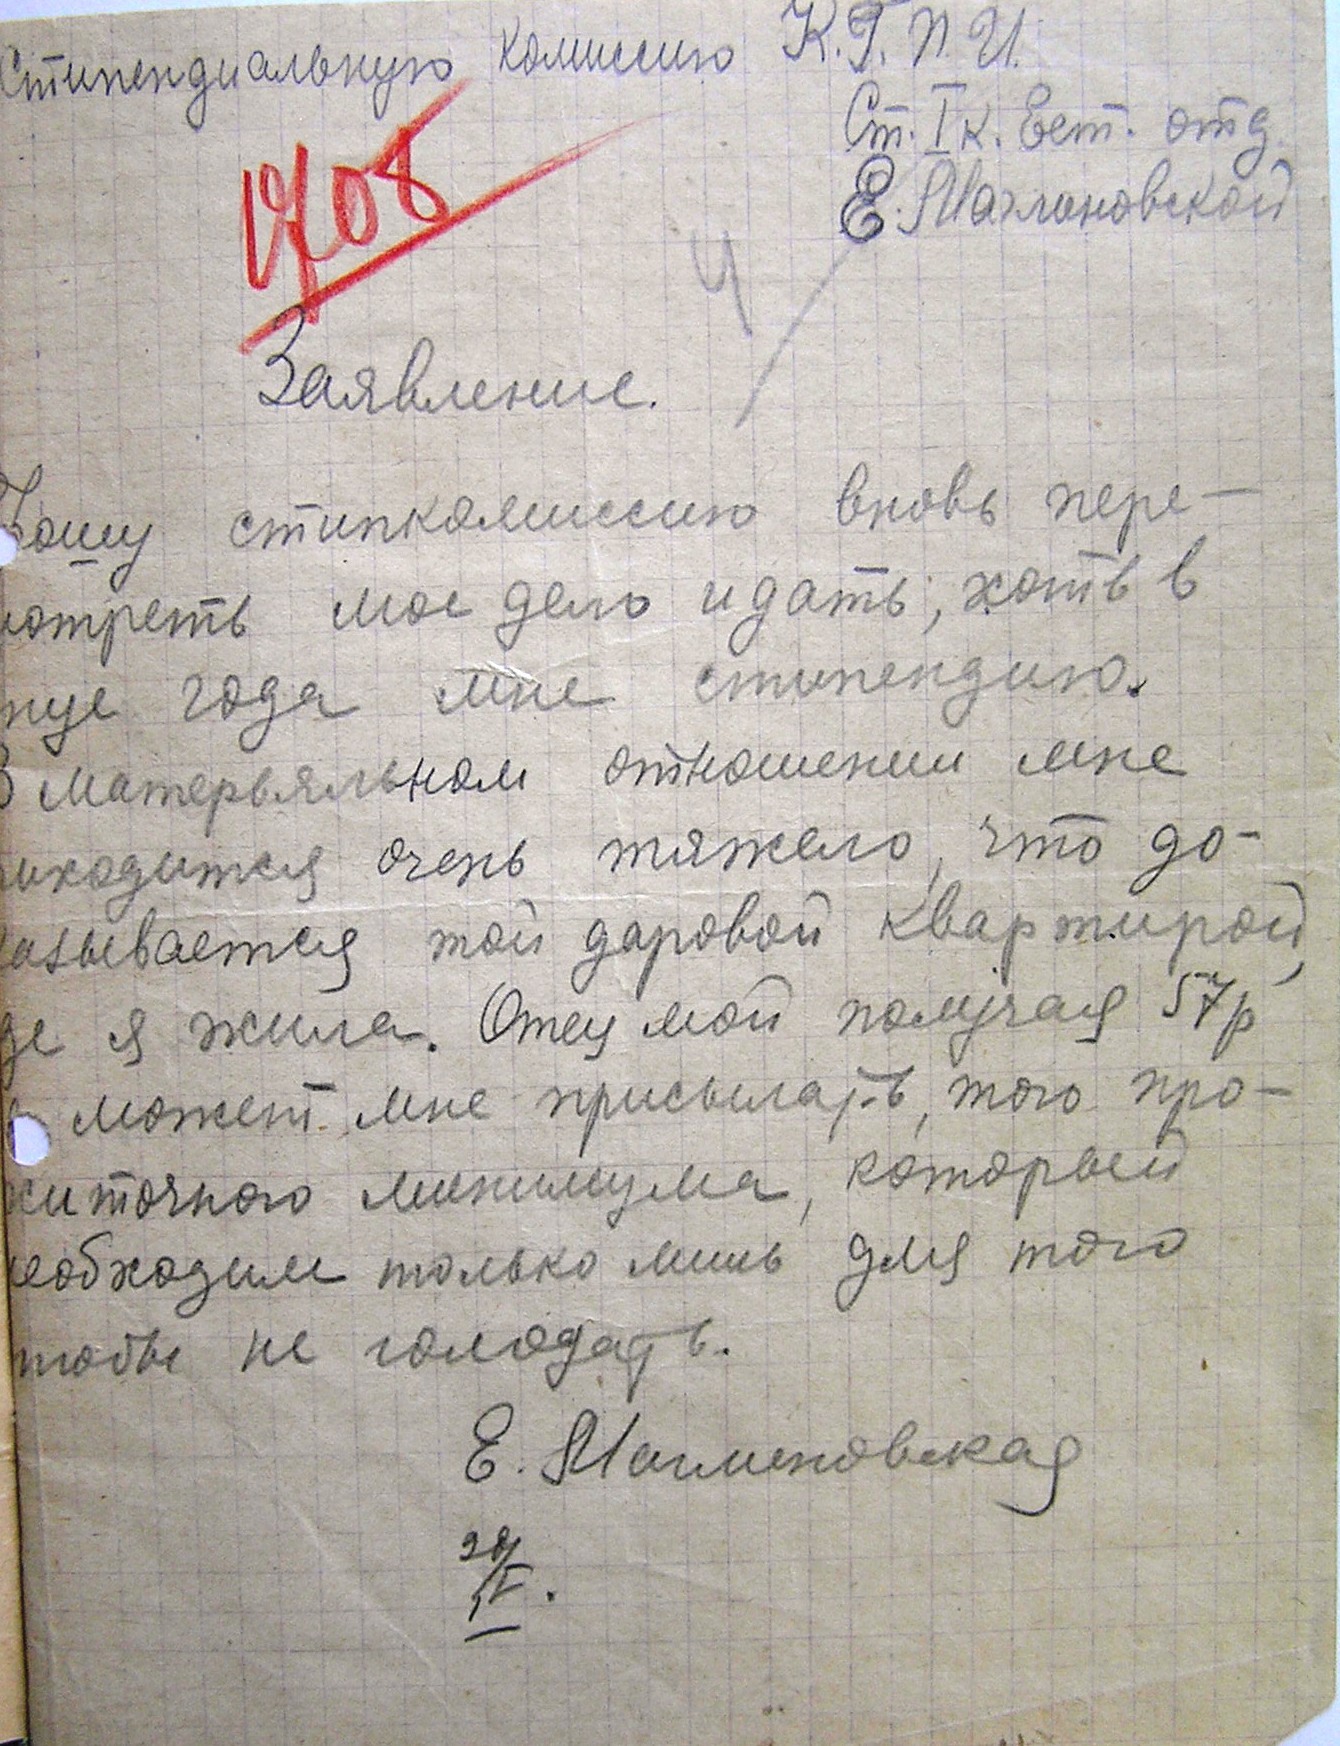 Стипендиальную комиссию К.Г.П.И.
Ст. I к. Ест. отд.
Е. Маглиновской
1708
4
Заявление.
Прошу стипкомиссию вновь пере-
мотреть мое дело и дать, хоть в
нце года мне стипендию.
В матерьяльном отношении мне
иходится очень тяжело, что до-
казывается той даровой квартирой,
де я жила. Отец мой получая 57р
может мне присылать, того про-
житочного минимума, который
необходим только лишь для того
чтобы не голодать.
Е.